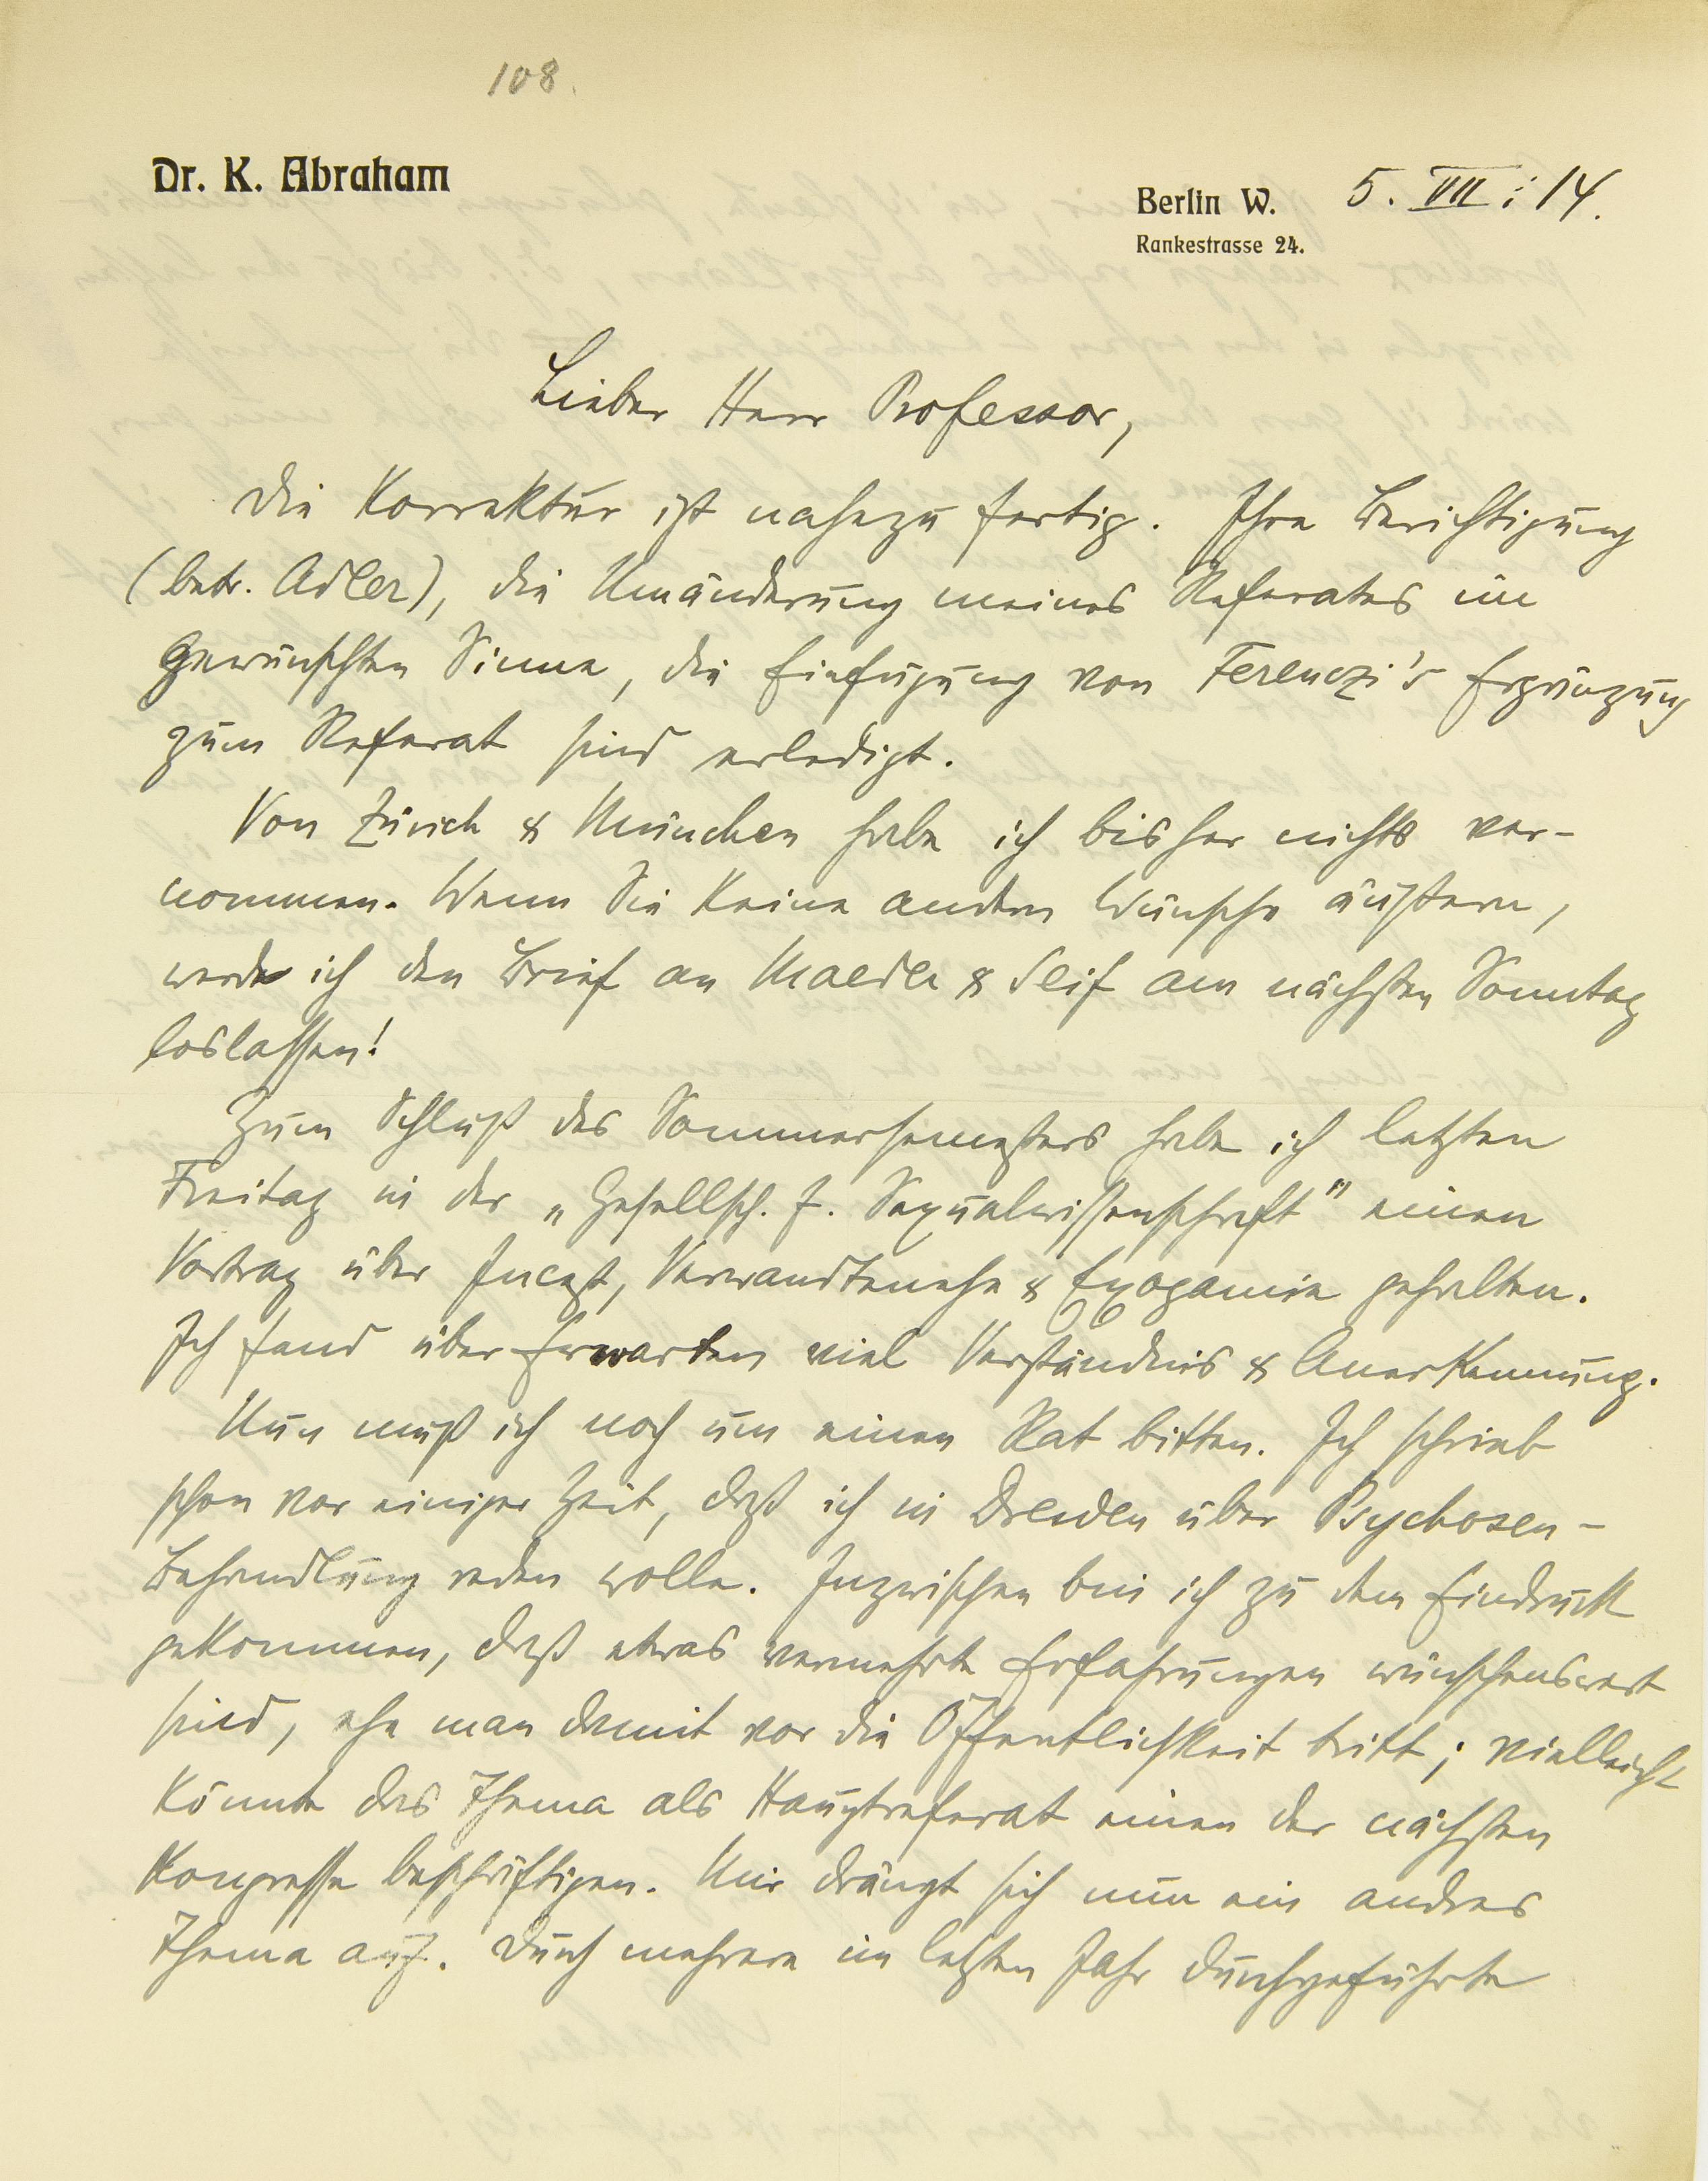 108.
Dr. K. Abraham
Berlin W. 5. VII. 14.
Rankestrasse 24.
Lieber Herr Professor,
die Korrektur ist nahezu fertig. Ihre Berichtigung
(betr. Adler), die Umänderung meines Referates im
gewünschten Sinne, die Einfügung von Ferenczi's Ergänzung
zum Referat sind erledigt.
Von Zürich & München habe ich bisher nichts ver-
nommen. Wenn Sie keine andern Wünsche äußern,
werde ich den Brief an Maeder & Seif am nächsten Sonntag
loslassen!
Zum Schluß des Sommersemesters habe ich letzten
Freitag in der „Gesellsch. f. Sexualwissenschaft" einen
Vortrag über Incest, Verwandtenehe & Exogamie gehalten.
Ich fand über Erwarten viel Verständnis & Anerkennung.
Nun muß ich noch um einen Rat bitten. Ich schrieb
schon vor einiger Zeit, daß ich in Dresden über Psychosen-
Behandlung reden wolle. Inzwischen bin ich zu dem Eindruck
gekommen, daß etwas vermehrte Erfahrungen wünschenswert
sind, ehe man damit vor die Öffentlichkeit tritt; vielleicht
könnte das Thema als Hauptreferat einen der nächsten
Kongresse beschäftigen. Mir drängt sich nun ein andres
Thema auf. Durch mehrere im letzten Jahr durchgeführte